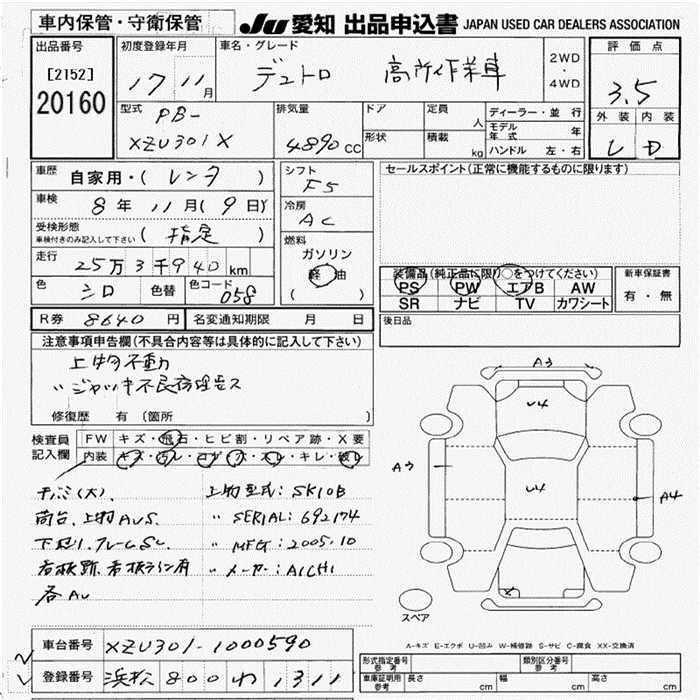 車内保管・守衛保管
JU 愛知 出品申込書 JAPAN USED CAR DEALERS ASSOCIATION
出品番号
[2152]
20160
初度登録年月
17 11月
車名・グレード
デュトロ 高所作業車
2WD
・
4WD
評価点
3.5
外装 内装
型式
PB-
XZU301X
排気量
4890cc
ドア
定員
人
形状
積載
kg
ディーラー・並行
モデル年式 年
ハンドル 左・右
車歴
自家用・(レンタ)
車検
8年11月(9日)
受検形態
車検付きのみ記入して下さい
(指定)
走行
25万3千940km
色
シロ
色替
色コード
058
シフト
F5
冷房
AC
燃料
ガソリン
軽油
( )
セールスポイント(正常に機能するものに限ります)
装備品(純正品に限り○をつけてください)
PS PW エアB AW
SR ナビ TV カワシート
新車保証書
有・無
後日品
R券 8640円
名変通知期限 月 日
注意事項申告欄(不具合内容等は具体的に記入して下さい)
上物不動
〃ジャッキ不良
修復歴 有(箇所 )
検査員
記入欄
FW キズ・飛石・ヒビ割・リペア跡・X要
内装
上物型式:SK10B
〃 SERIAL:692174
〃 MFG:2005.10
〃 メーカー:AICHI
荷台、上物AUS.
各AU
A3
U4
U4
Aウ
A4
スペア
A-キズ E-エクボ U-凹み W-補修跡 S-サビ C-腐食 XX-交換済
車台番号 XZU301-1000590
登録番号 浜松 800 わ 1311
形式指定番号
参考
類別区分番号
参考
車庫証明用
参考
長さ cm
幅 cm
高さ cm